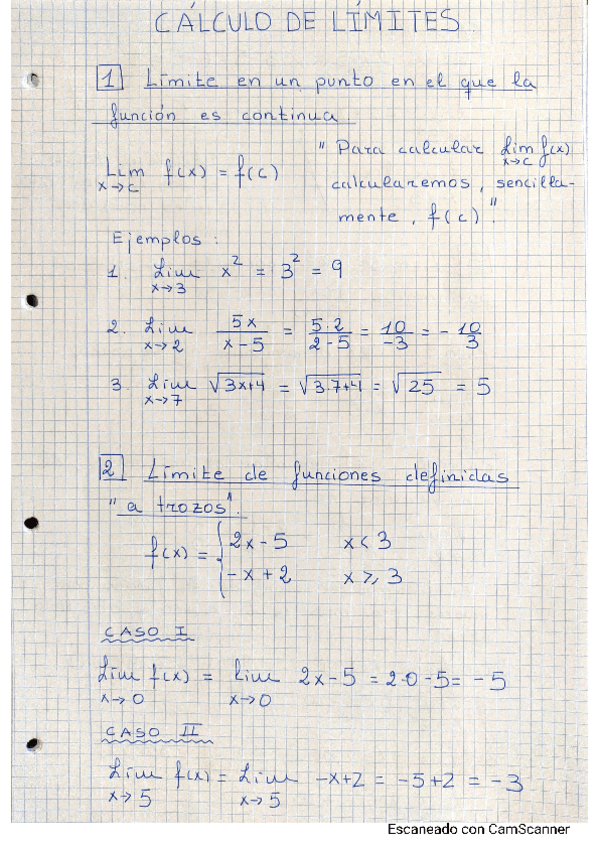 CÁLCULO DE LÍMITES
1 Límite en un punto en el que la
función es continua.
Lim x→c f(x) = f(c)
" Para calcular Lim x→c f(x)
calcularemos, sencilla-
mente, f(c)".
Ejemplos:
1. Lim x→3 x² = 3² = 9
2. Lim x→2 5x/(x-5) = 5·2/(2-5) = 10/-3 = -10/3
3. Lim x→7 √(3x+4) = √(3·7+4) = √25 = 5
2 Límite de funciones definidas
" a trozos".
f(x) = { 2x-5 x<3
-x+2 x⩾3
CASO I
Lim x→0 f(x) = Lim x→0 2x-5 = 2·0-5 = -5
CASO II
Lim x→5 f(x) = Lim x→5 -x+2 = -5+2 = -3
Escaneado con CamScanner